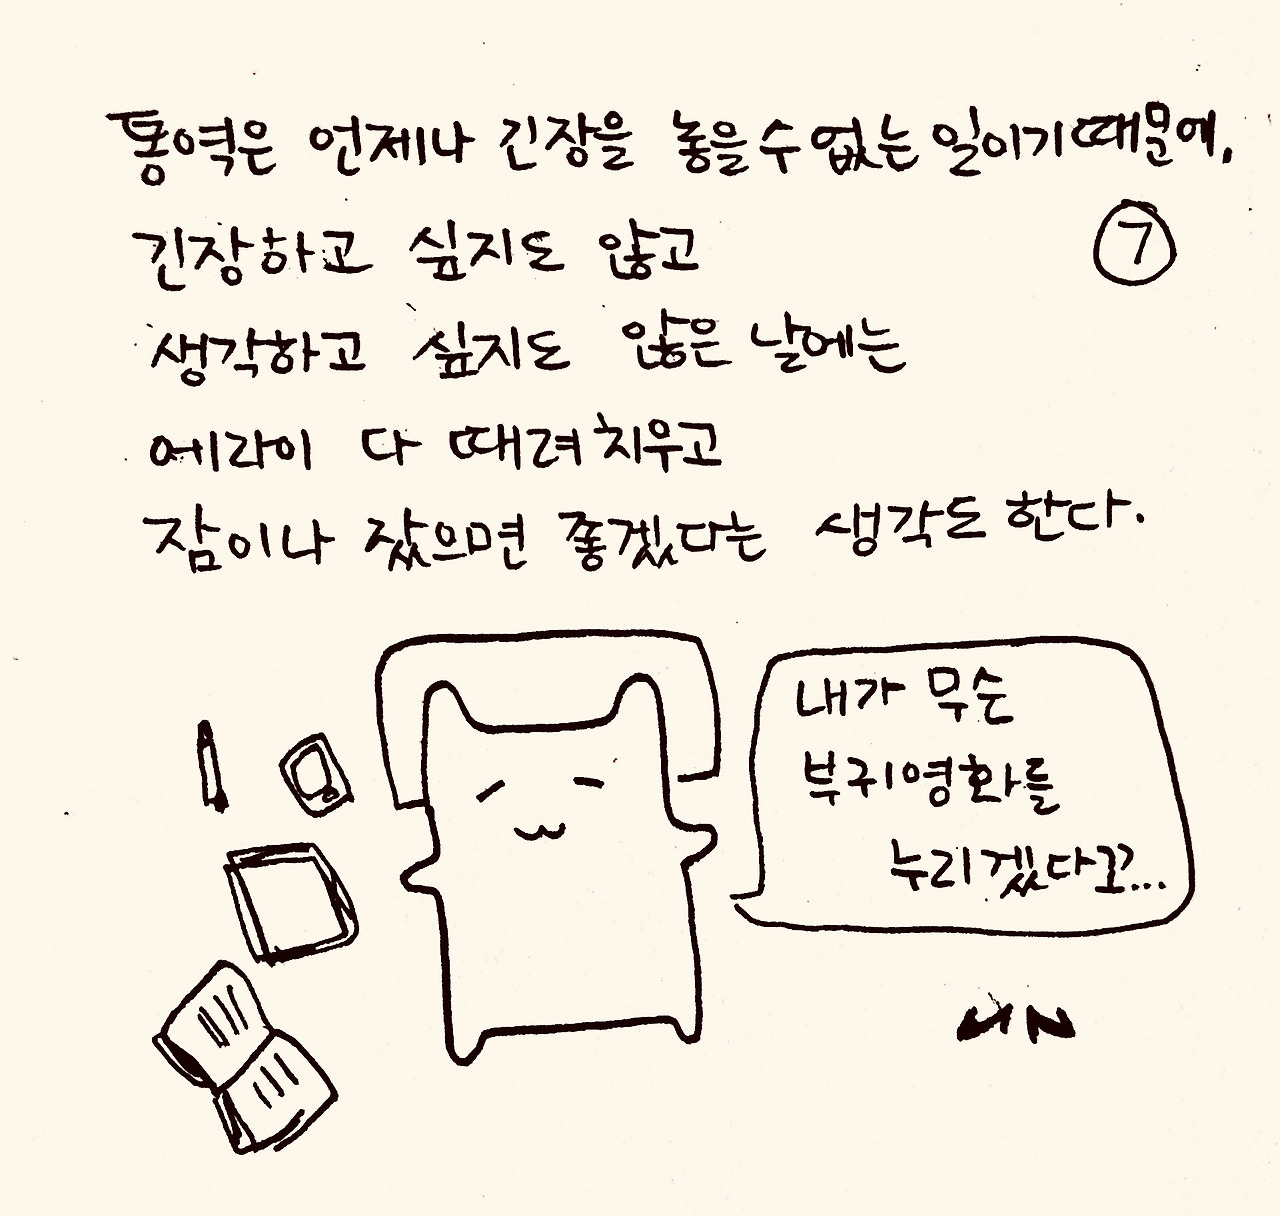 통역은 언제나 긴장을 놓을 수 없는 일이기 때문에,
⑦
긴장하고 싶지도 않고
생각하고 싶지도 않은 날에는
에라이 다 때려치우고
잠이나 잤으면 좋겠다는 생각도 한다.
내가 무슨
부귀영화를
누리겠다고...